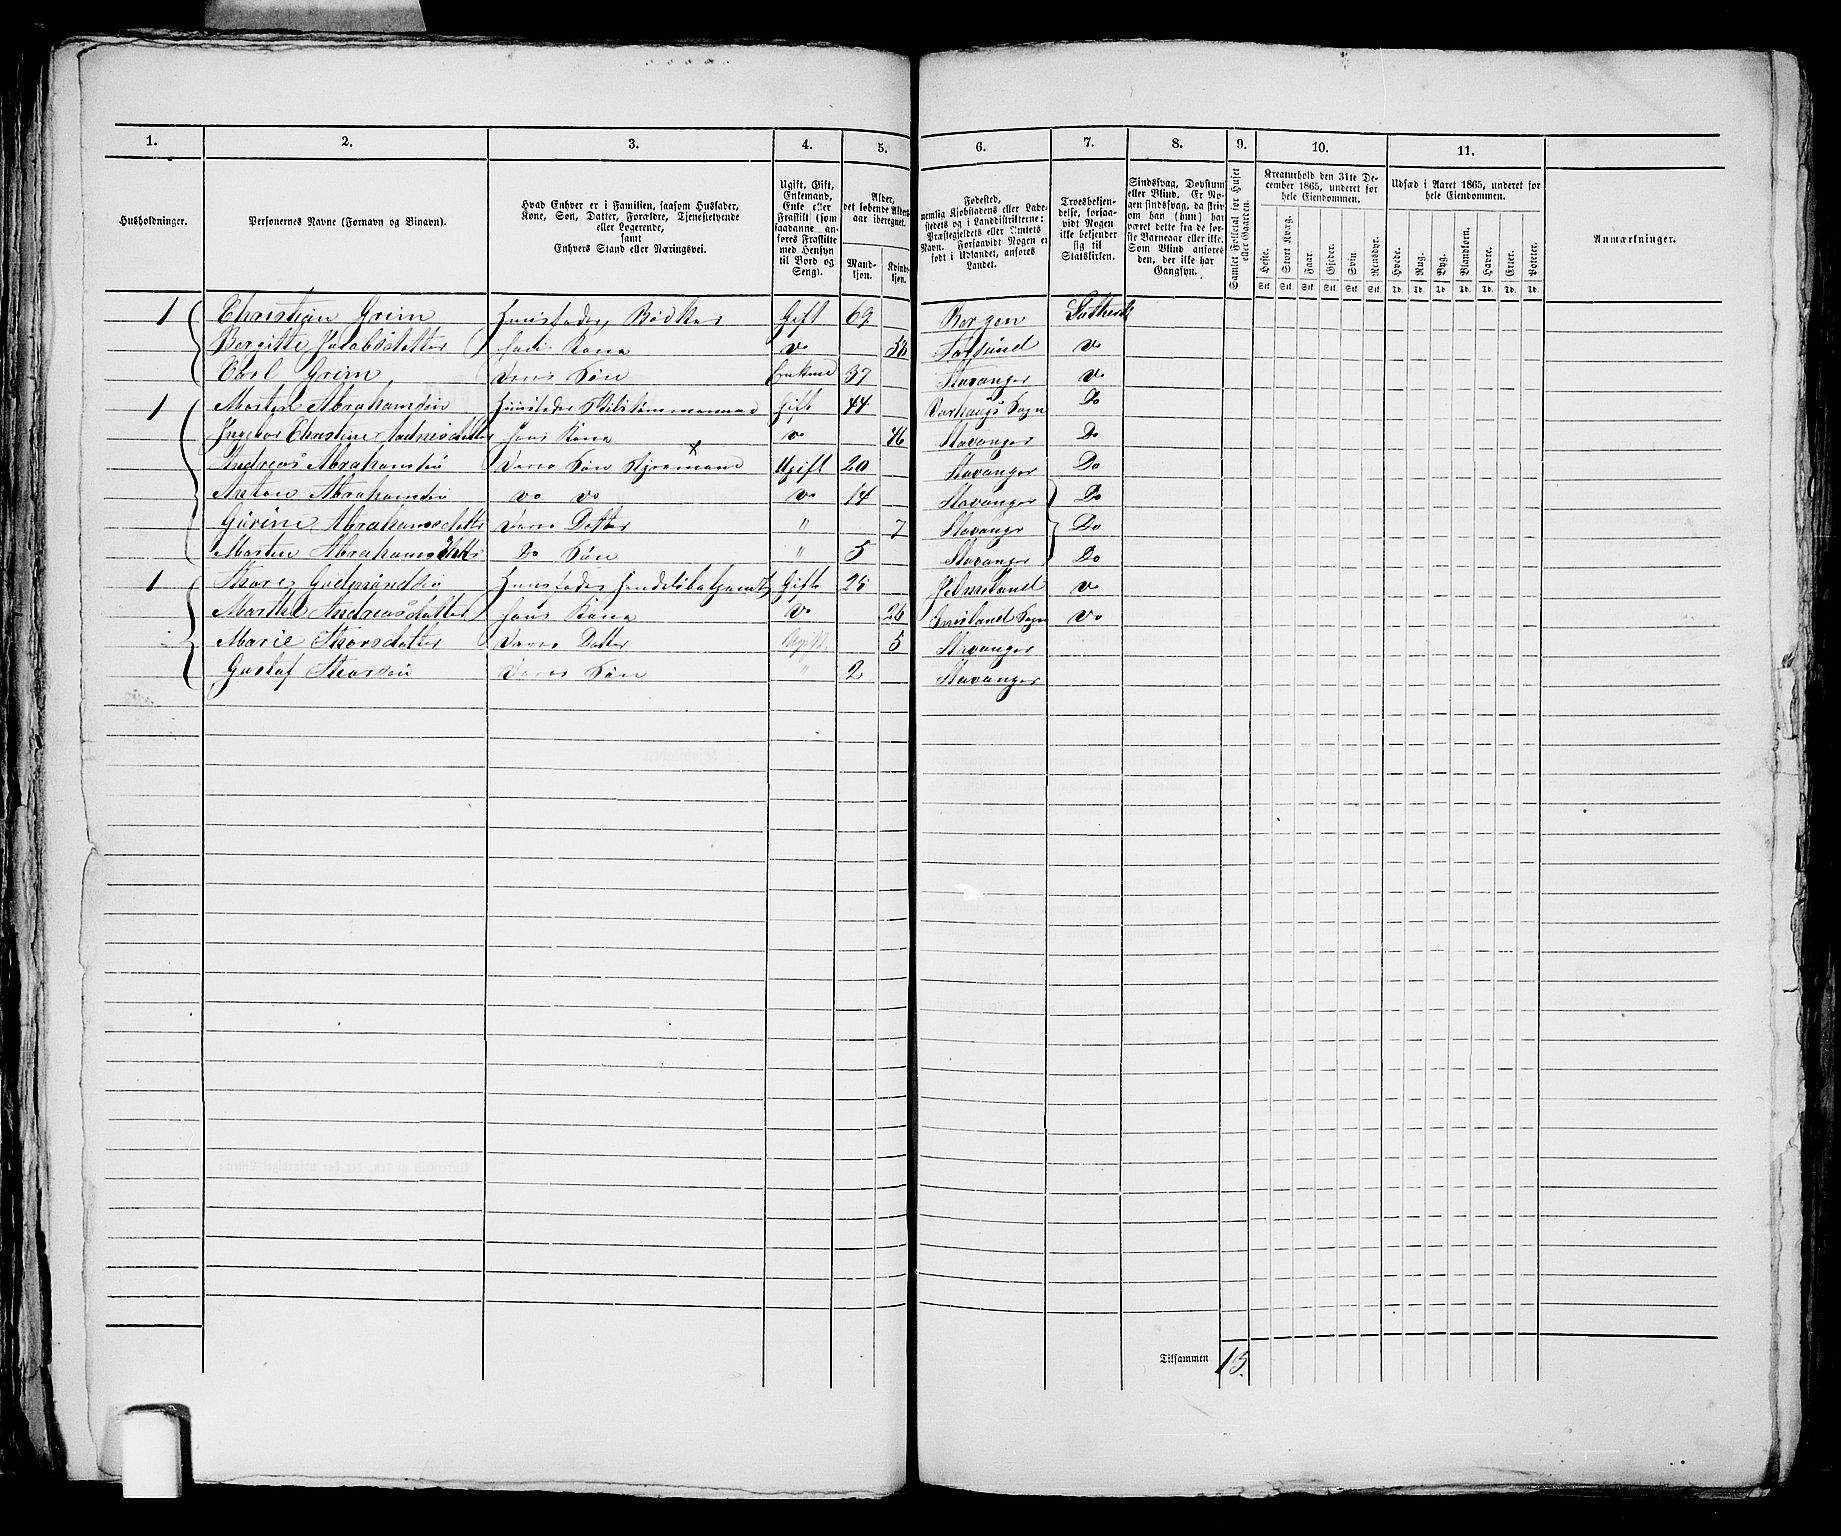 1. 2. 3. 4. 5. 6. 7. 8. 9. 10. 11.
Husholdninger.
Personernes Navne (Fornavn og Binavn).
Hvad Enhver er i Familien, saasom Husfader, Kone, Søn, Datter, Forældre, Tjenestetyende eller Logerende, samt Enhvers Stand eller Næringsvei.
Ugift, Gift, Enkemand, Enke eller Fraskilt (som saadanne anføres Fraskilte med Hensyn til Bord og Seng).
Alder, det løbende Alders-aar iberegnet.
Mandkjøn. Kvindkjøn.
Fødested, nemlig Kjøbstadens eller Ladestedets og i Landdistrikterne: Præstegjeldets eller Amtets Navn. Forsaavidt Nogen er født i Udlandet, anføres Landet.
Troesbekjendelse, forsaavidt Nogen ikke bekjender sig til Statskirken.
Sindssvag, Døvstum eller Blind. Er Nogen sindssvag, da skrives om han (hun) har været det fra de første Barneaar eller ikke. Som Blind anføres den, der ikke har Gangsyn.
Samlet Folketal for Huset eller Gaarden.
Kreaturhold den 31te December 1865, underet for hele Eiendommen.
Heste. Stort Kvæg. Faar. Gjeder. Svin. Rensdyr.
Stk. Stk. Stk. Stk. Stk. Stk.
Udsæd i Aaret 1865, underet for hele Eiendommen.
Hvede. Rug. Byg. Blandkorn. Havre. Erter. Poteter.
Td. Td. Td. Td. Td. Td. Td.
Anmærkninger.
1 Christian Grim Huusfader, Bødker Gift 69 Bergen
Bergitte Jacobsdatter hans Kone Do 58 Do
Carl Grim Deres Søn 37 Stavanger Do
1 Morten Abrahamsen Huusfader Gift 44 Varhougs Sogn Do
Ingebor Christine hans Kone Do 46 Stavanger Do
Andreas Abrahamsen Deres Søn Ugift 20 Stavanger Do
Anton Abrahamsen Do Do Do 14 Stavanger Do
Gurine Abrahamsdatter Deres Datter " 7 Stavanger Do
Morten Abrahams Do Søn " 5 Stavanger Do
1 Thore Gudmundsen Huusfader Gift 25 Do
Marthe Andreasdatter hans Kone Do 26 Sogn Do
Marie Thorsdatter Deres Datter Ugift 5 Stavanger
Gustaf Thorsen Deres Søn " 2 Stavanger
Tilsammen 13.